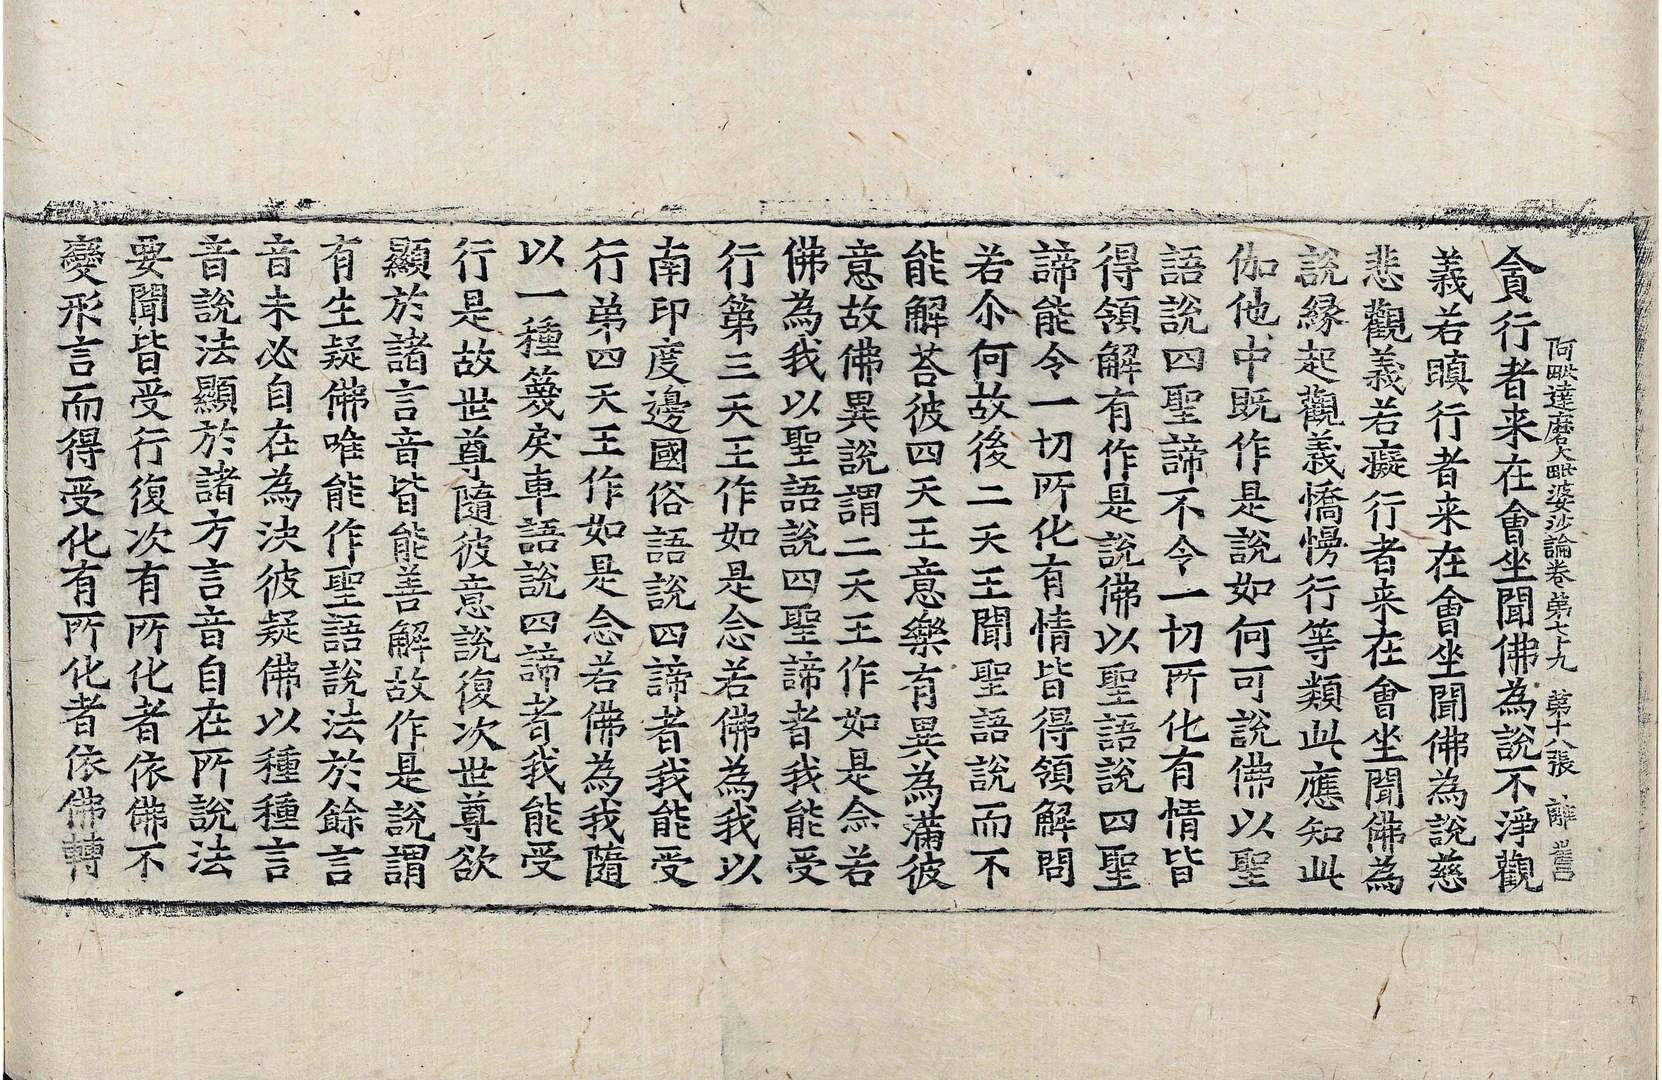 阿毗達磨大毗婆沙論卷第七十九 第十八張 離
貪行者来在會坐聞佛為說不淨觀
義若瞋行者来在會坐聞佛為說慈
悲觀義若癡行者来在會坐聞佛為
說緣起觀義憍慢行等類此應知此
伽他中既作是說如何可說佛以聖
語說四聖諦不令一切所化有情皆
得領解有作是說佛以聖語說四聖
諦能令一切所化有情皆得領解問
若尒何故後二天王聞聖語說而不
能解荅彼四天王意樂有異為滿彼
意故佛異說謂二天王作如是念若
佛為我以聖語說四聖諦者我能受
行第三天王作如是念若佛為我以
南印度邊國俗語說四諦者我能受
行第四天王作如是念若佛為我隨
以一種篾戾車語說四諦者我能受
行是故世尊隨彼意說復次世尊欲
顯於諸言音皆能善解故作是說謂
有生疑佛唯能作聖語說法於餘言
音未必自在為決彼疑佛以種種言
音說法顯於諸方言音自在所說法
要聞皆受行復次有所化者依佛不
變形言而得受化有所化者依佛轉